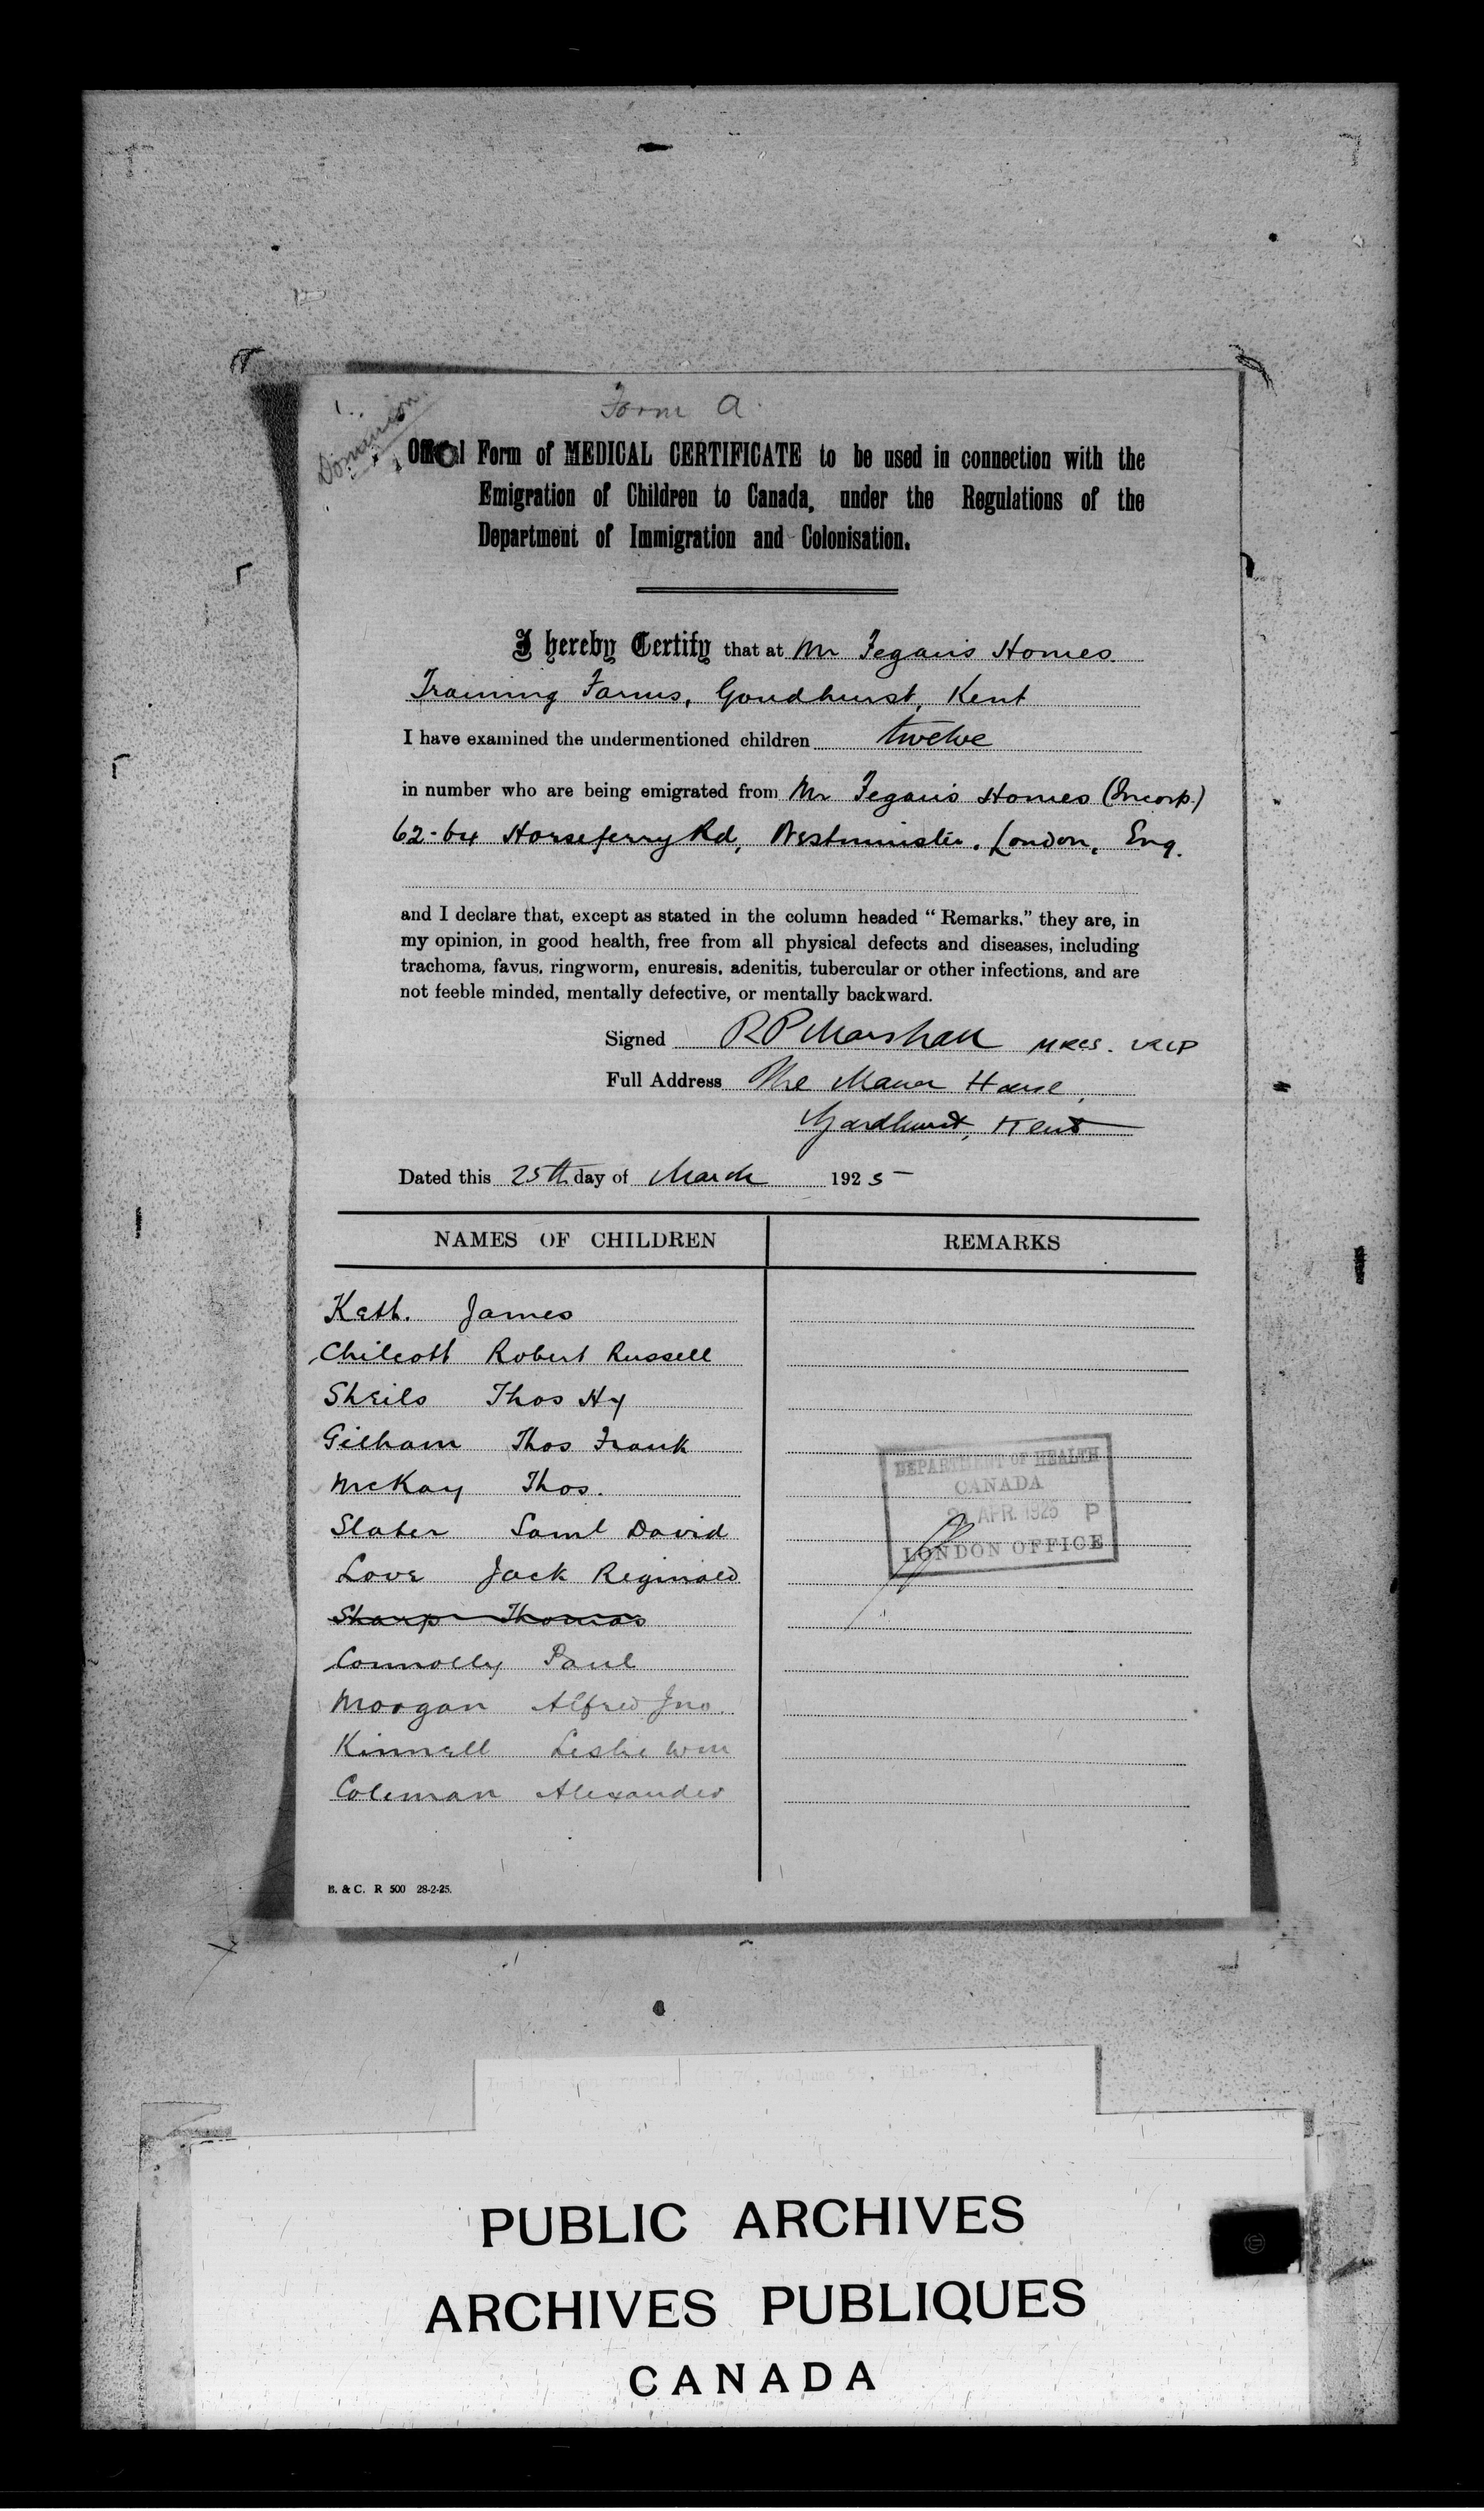 Form A.
Dominion
Official Form of MEDICAL CERTIFICATE to be used in connection with the
Emigration of Children to Canada, under the Regulations of the
Department of Immigration and Colonisation.
I hereby Certify that at Mr Fegan's Homes.
Training Farms, Goudhurst, Kent
I have examined the undermentioned children twelve
in number who are being emigrated from Mr Fegan's Homes (Incorp.)
62-64 Horseferry Rd, Westminster. London, Eng.
and I declare that, except as stated in the column headed "Remarks," they are, in
my opinion, in good health, free from all physical defects and diseases, including
trachoma, favus, ringworm, enuresis, adenitis, tubercular or other infections, and are
not feeble minded, mentally defective, or mentally backward.
Signed RP Marshall MRCS. LRCP
Full Address The Manor House,
Goudhurst, Kent
Dated this 25th day of March 1925
NAMES OF CHILDREN REMARKS
James
Chilcott Robert Russell
Sheils Thos Hy
Gilham Thos Frank
McKay Thos.
Slater Saml David
Love Jack Reginald
Sharp Thomas
Connolly Paul
Morgan Alfred Jno.
Kinnell Leslie Wm
Coleman Alexander
DEPARTMENT OF HEALTH
CANADA
APR. 1925 P
LONDON OFFICE
B. & C. R 500 28-2-25.
PUBLIC ARCHIVES
ARCHIVES PUBLIQUES
CANADA